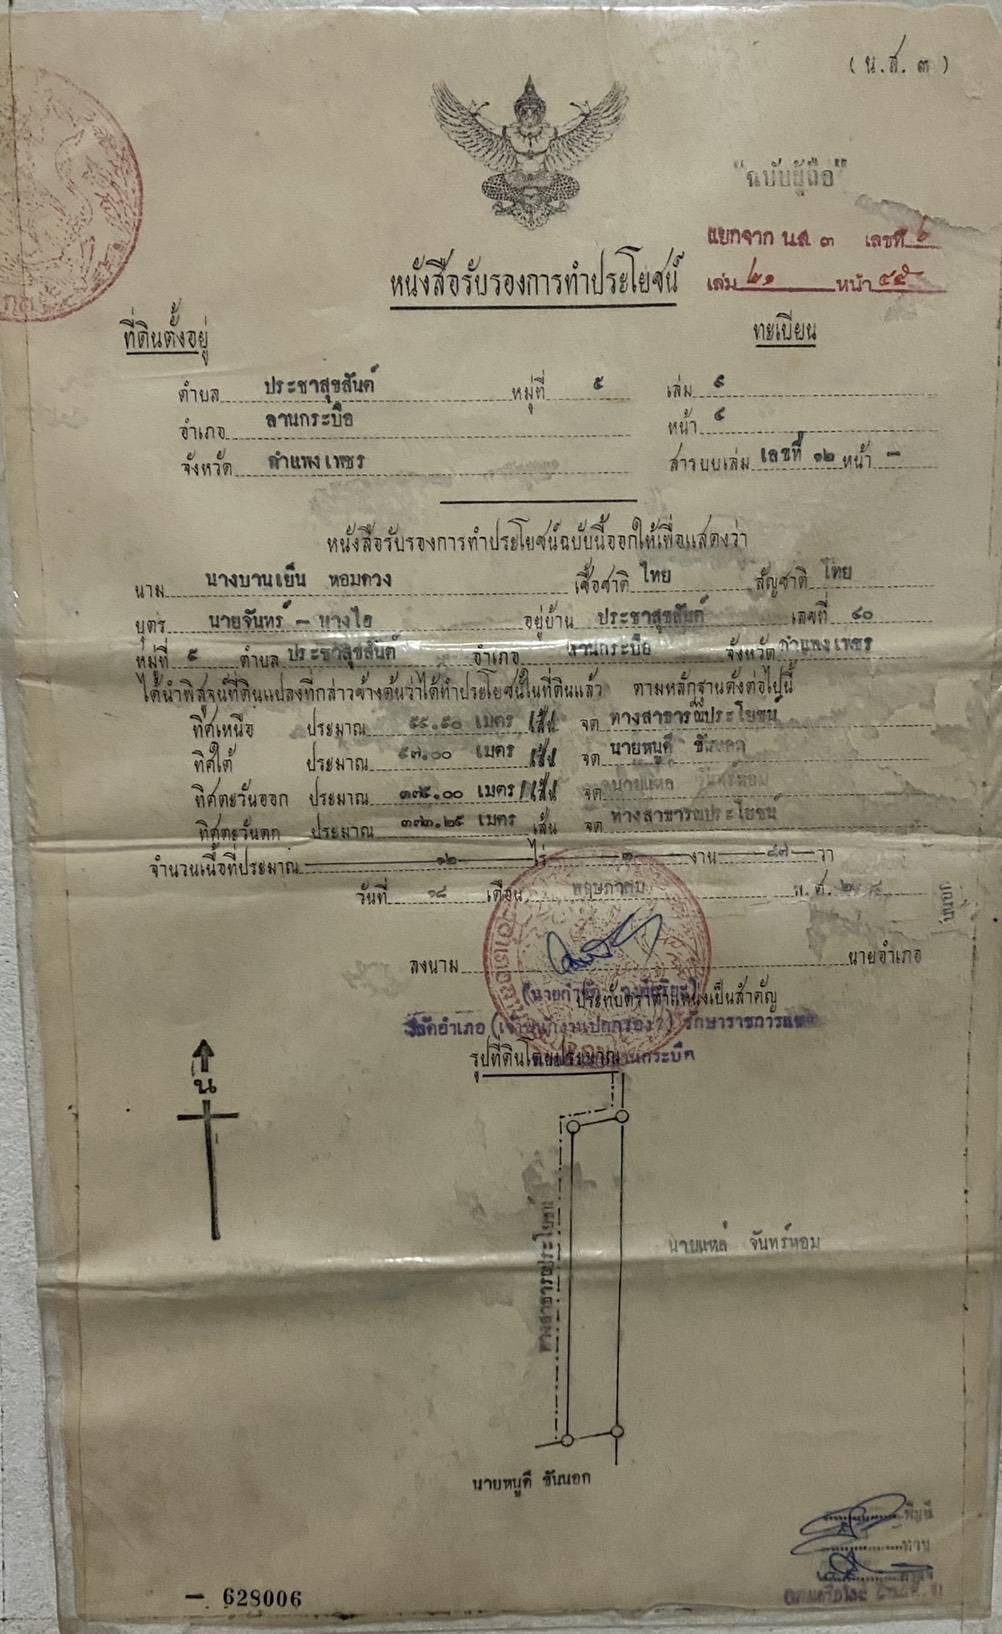 ( น.ส. ๓ )
"ฉบับผู้ถือ"
แยกจาก น.ส. ๓ เลขที่ ๖
เล่ม ๒๑ หน้า
หนังสือรับรองการทำประโยชน์
ที่ดินตั้งอยู่
ทะเบียน
ตำบล ประชาสุขสันต์ หมู่ที่ ๕ เล่ม ๙
อำเภอ ลานกระบือ หน้า
จังหวัด กำแพงเพชร สารบบเล่ม เลขที่ ๑๒ หน้า -
หนังสือรับรองการทำประโยชน์ฉบับนี้ออกให้เพื่อแสดงว่า
นาม นางบานเย็น หอมดวง เชื้อชาติ ไทย สัญชาติ ไทย
บุตร นายจันทร์ - นางไฮ อยู่บ้าน ประชาสุขสันต์ เลขที่
หมู่ที่ ตำบล ประชาสุขสันต์ อำเภอ ลานกระบือ จังหวัด กำแพงเพชร
ได้นำพิสูจน์ที่ดินแปลงที่กล่าวข้างต้นว่าได้ทำประโยชน์ในที่ดินแล้ว ตามหลักฐานดังต่อไปนี้
ทิศเหนือ ประมาณ เมตร เส้น จด ทางสาธารณประโยชน์
ทิศใต้ ประมาณ เมตร เส้น จด นายหนูดี ขันนอก
ทิศตะวันออก ประมาณ เมตร เส้น จด นายแหล่ จันทร์หอม
ทิศตะวันตก ประมาณ ๓๗๓.๒๕ เมตร เส้น จด ทางสาธารณประโยชน์
จำนวนเนื้อที่ประมาณ ๑๒ ไร่ ๓ งาน ๘๗ วา
วันที่ ๑๘ เดือน พฤษภาคม พ.ศ.
ลงนาม นายอำเภอ
ประทับตราตำแหน่งเป็นสำคัญ
ปลัดอำเภอ (เจ้าพนักงานปกครอง ) รักษาราชการแทน
รูปที่ดินโดยประมาณ
น
ทางสาธารณประโยชน์
นายแหล่ จันทร์หอม
นายหนูดี ขันนอก
- 628006